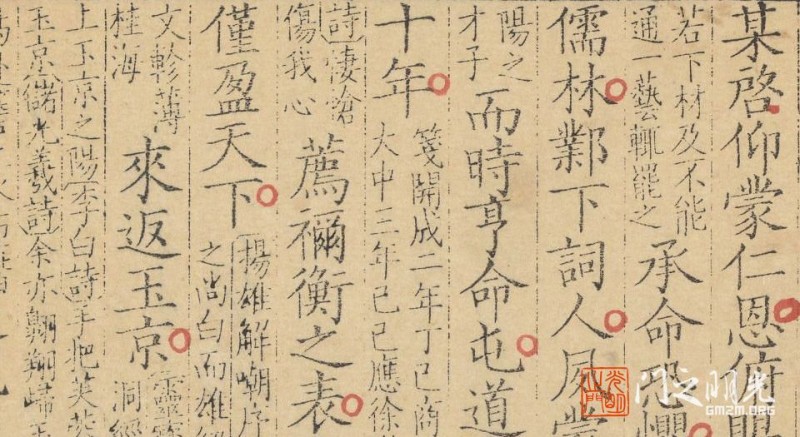 某啓仰蒙仁恩俯
若下材及不能
通一藝輒罷之
承命恐懼
儒林鄴下詞人夙嘗
陽之
才子
而時亨命屯道
十年
箋開成二年丁巳商
大中三年己巳應徐
詩悽愴
傷我心
薦禰衡之表
僅盈天下
揚雄解嘲序
之尚白而雄
文軫薄
桂海
來返玉京
靈
洞經
上玉京之陽李白詩手把芙
玉京儲光羲詩余亦翱翔歸
光明之門
GMZM.ORG